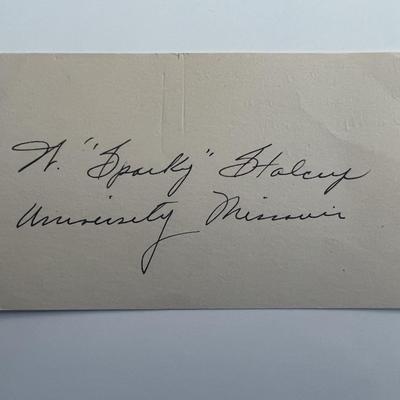 W. "Sparky" Stalcup
University Missouri